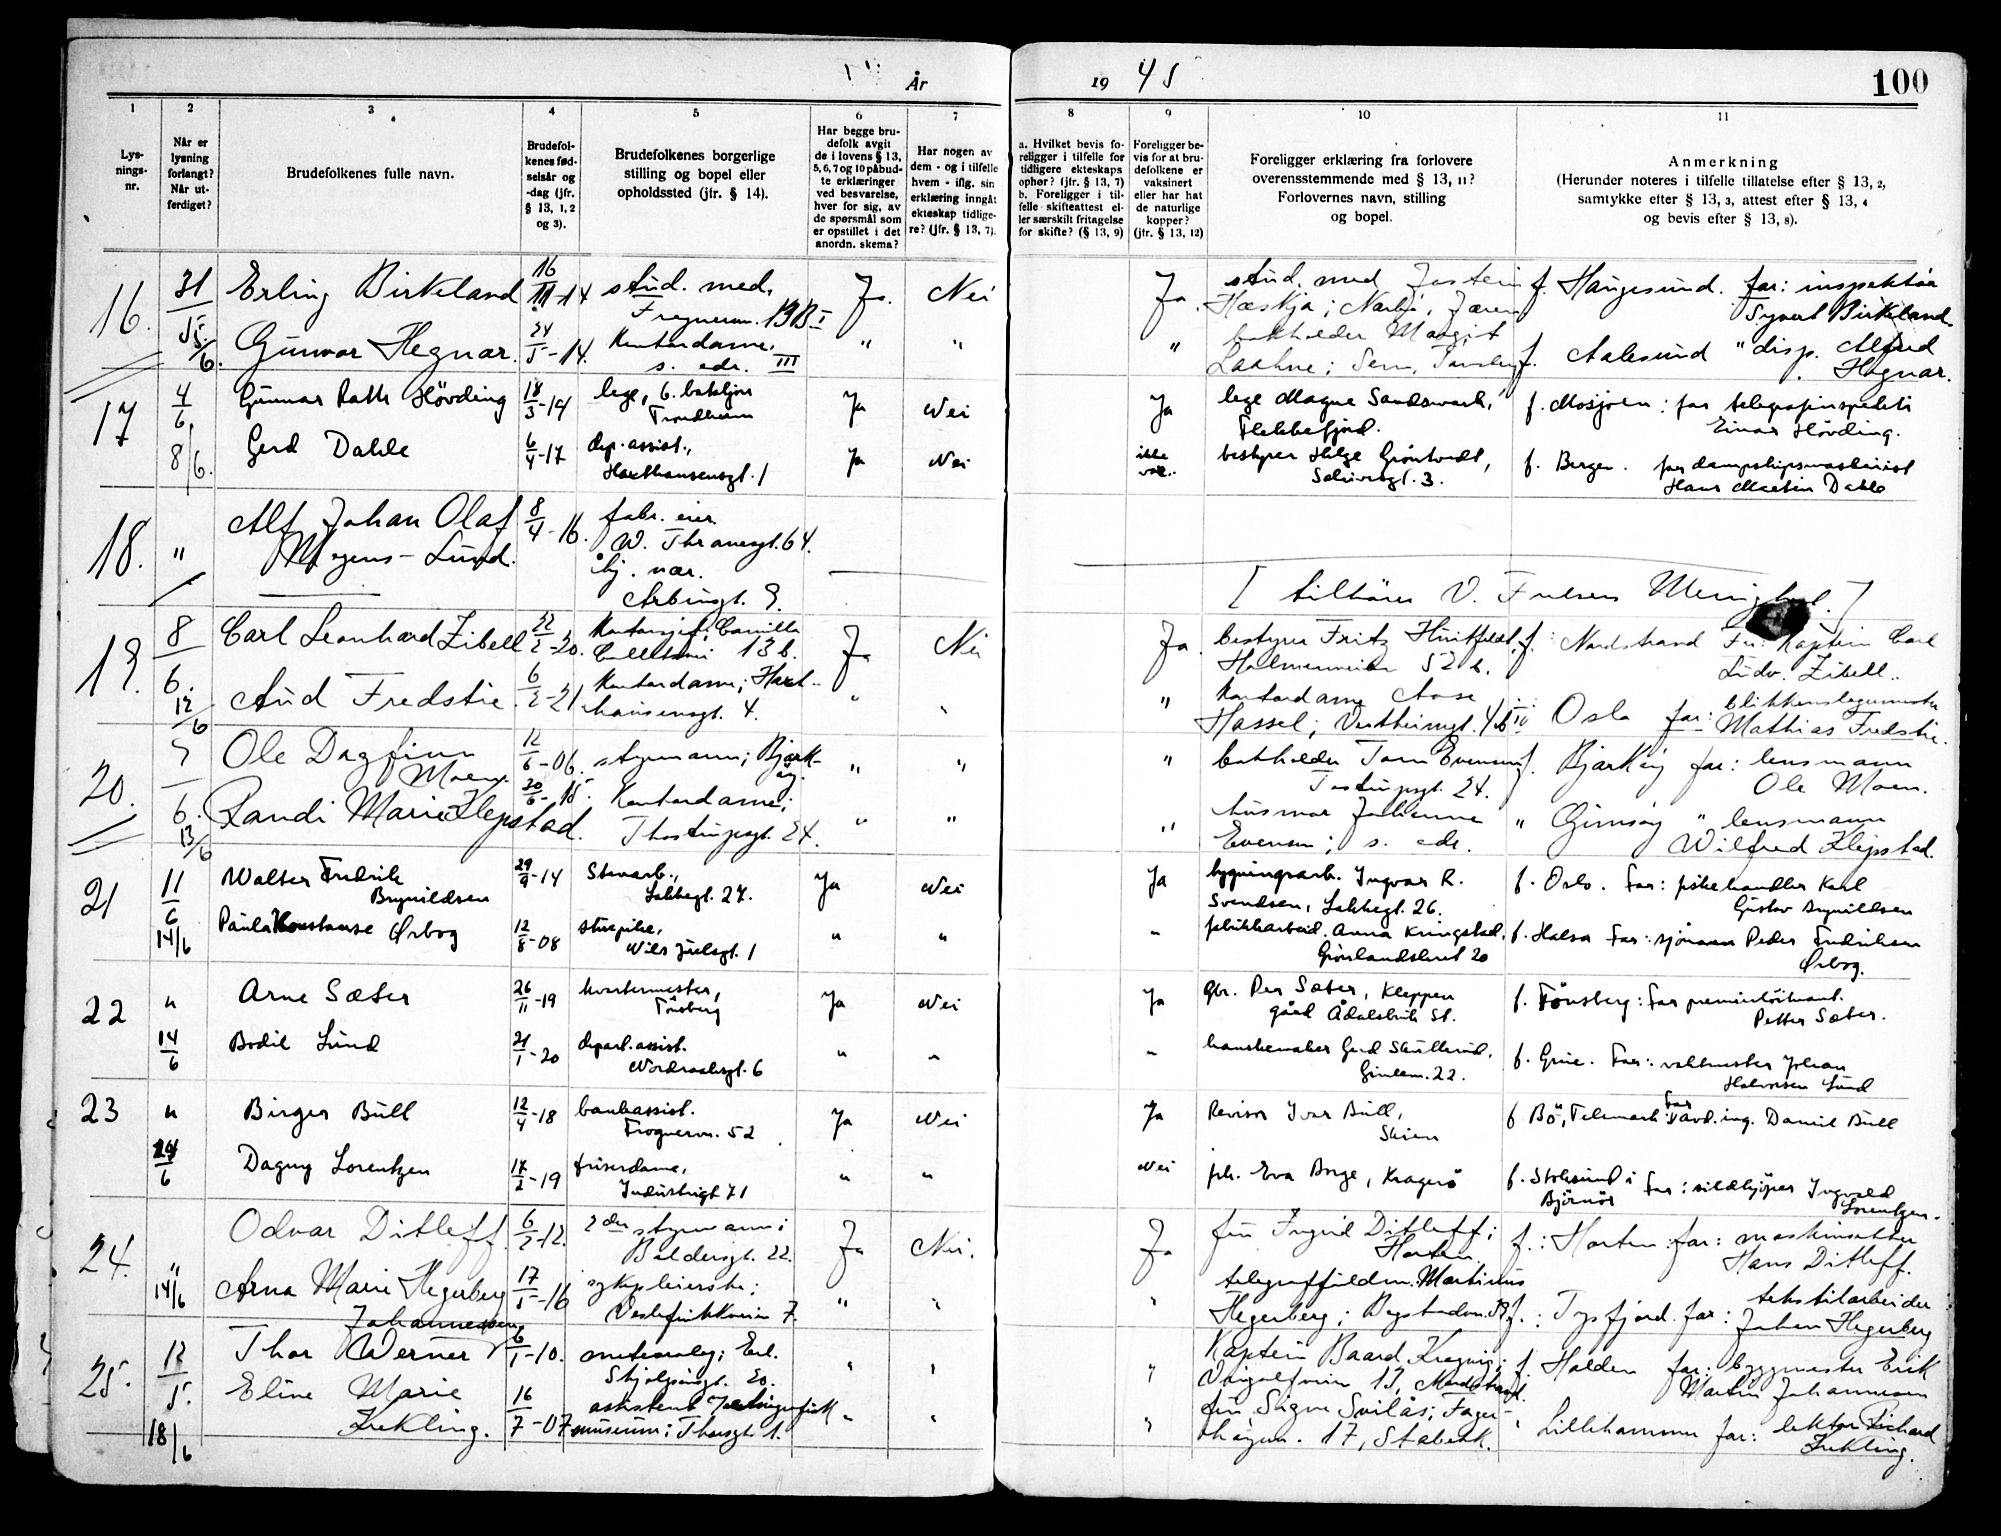 År
19 45
100
1
2
3
4
5
6
7
8
9
10
11
Lys-
nings-
nr.
Når er
lysning
forlangt?
Når ut-
ferdiget?
Brudefolkenes fulle navn.
Brudefol-
kenes fød-
selsår og
-dag (jfr.
§ 13, 1, 2
og 3).
Brudefolkenes borgerlige
stilling og bopel eller
opholdssted (jfr. § 14).
Har begge bru-
defolk avgit
de i lovens § 13,
5, 6, 7 og 10 påbud-
te erklæringer
ved besvarelse,
hver for sig, av
de spørsmål som
er opstillet i det
anordn. skema?
Har nogen av
dem - og i tilfelle
hvem - iflg. sin
erklæring inngåt
ekteskap tidlige-
re? (jfr. § 13, 7).
a. Hvilket bevis fo-
religger i tilfelle for
tidligere ekteskaps
ophør? (jfr. § 13, 7)
b. Foreligger i til-
felle skifteattest el-
ler særskilt fritagelse
for skifte? (§ 13, 9)
Foreligger be-
vis for at bru-
defolkene er
vaksinert
eller har hat
de naturlige
kopper?
(jfr. § 13, 12)
Foreligger erklæring fra forlovere
overensstemmende med § 13, 11?
Forlovernes navn, stilling
og bopel.
Anmerkning
(Herunder noteres i tilfelle tillatelse efter § 13, 2,
samtykke efter § 13, 3, attest efter § 13, 4
og bevis efter § 13, 8).
16. 31/5 Erling Birkeland 16/11-14 stud. med. Ja. Nei Ja stud. med Jostein f. Haugesund. far: inspektør
Frognerv. 19B I Hæskja; Nærbø, Jæren Syvert Birkeland.
5/6 Gunvor Hegnar. 24/5-14. Kontordame, " " " bokholder Margit f. Aalesund " disp. Alfred
s. adr. III Sem, Tønsberg Hegnar.
17 4/6 Gunnar Rath Hövding 18/3-19 lege, Trondheim Ja Nei Ja lege Magne Sandsmark, f. Mosjøen: far telegrafinspektör
Flekkefjord. Einar Hövding.
8/6. Gerd Dahle 6/4-17 dep. assist., Ja Nei ikke bestyrer Helge Gröntvedt, f. Bergen. far dampskipsmaskinist
Harthausensgt. 1 3. Hans Martin Dahle
18. " Alf Johan Olaf 8/4-16. fabr. eier
Mogens-Lund. W. Thranesgt. 64.
Arbinsgt. 9.
[ tilhører V. Frelsers Menighet. ]
19. 8/6. Carl Leonhard Zibell 22/2-20. Kontorsjef, Camilla Ja Nei Ja. bestyrer Fritz Huitfeldt, f: Nordstrand Far: Kaptein Carl
Colletts vei 13 b. Holmenveien 52 b. Ludv. Zibell.
12/6 Aud Fredstie. 6/2-21 Kontordame; Hart- " " " Kontordame Aase Oslo far: blikkenslagermester
hausensgt. 4. Hassel; Vestheimgt. 4b IV Mathias Fredstie.
20. 9/6. Ole Dagfinn 12/6-06. styrmann; Bjark- " " " bokholder Tom Evensen, f. Bjarköy far: lensmann
Moen. öy. Tostrupsgt. 24. Ole Moen.
13/6 Randi Marie Klepstad. 20/6-15. Kontordame; " " " husmor Johanne " Gimsöy " lensmann
Thostrupsgt. 24. Evensen; s. adr. Wilfred Klepstad.
21 11/6 Walter Fredrik 29/9-14 Stenarb., Ja Nei Ja bygningsarb. Ingvar R. f. Oslo. Far: fiskehandler Karl
Brynildsen Lakkegt. 24. Svendsen, Lakkegt. 26. Gustav Brynildsen
14/6 Paula Konstanse Ørbog 12/8-08 stuepike, " " " fabrikkarbeid. Anna Kringstad, f. Halsa Far: sjömann Peder Fredriksen
Niels Juelsgt. 1 Grönlandsleret 20 Ørbog.
22 " Arne Sæter 26/11-19 kvartermester, Ja Nei Ja gbr. Per Sæter, Kleppen f. Tönsberg: Far premierlöitnant.
Tönsberg gård Ådalsbruk St. Petter Sæter.
14/6 Bodil Lund 21/1-20 depart. assist. " " " hanskemaker Gerd Skullerud, f. Grue. Far: valtmester Johan
Nordraaksgt. 6 Gimlem. 22. Halvorsen Lund
23 " Birger Bull 12/4-18 bankassist. Ja Nei Ja Revisor Ivar Bull, f Bö, Telemark: far avd. ing. Daniel Bull
Frognerv. 52 Skien
14/6 Dagny Lorentzen 17/2-19 friserdame, " " Nei frk. Eva Borge, Kragerö f. Stoksund i Far: sildkjöper Ingvald
Industrigt 71 Björnör Lorentzen.
24. " Odvar Ditleff. 6/2-12. 2den styrmann; Ja Nei. Ja fru Ingrid Ditleff; f.: Horten far: maskinsetter
Baldersgt. 22. Horten Hans Ditleff.
14/6 Arna Marie Hegerberg 17/5-16 sykepleierske; " " " Martinus f.: Tysfjord. far: tekstilarbeider
Veslefrikkveien 7. Hegerberg; Johan Hegerberg
25. 12/5. Thor Werner Johannessen 6/1-10. meteorolog; Erl. " " " Kaptein Baard f. Halden far: byggmester Erik
Skjolgsönsgt. 20. 13, Nordstrand. Martin Johannesen
18/6 Eline Marie 16/7-07 assistent " " " fru Signe Svilås; Fager- " Lillehammer far: lektor Richard
Kekling. museum; Thorsgt. 1. 17, Stabekk. Kekling.